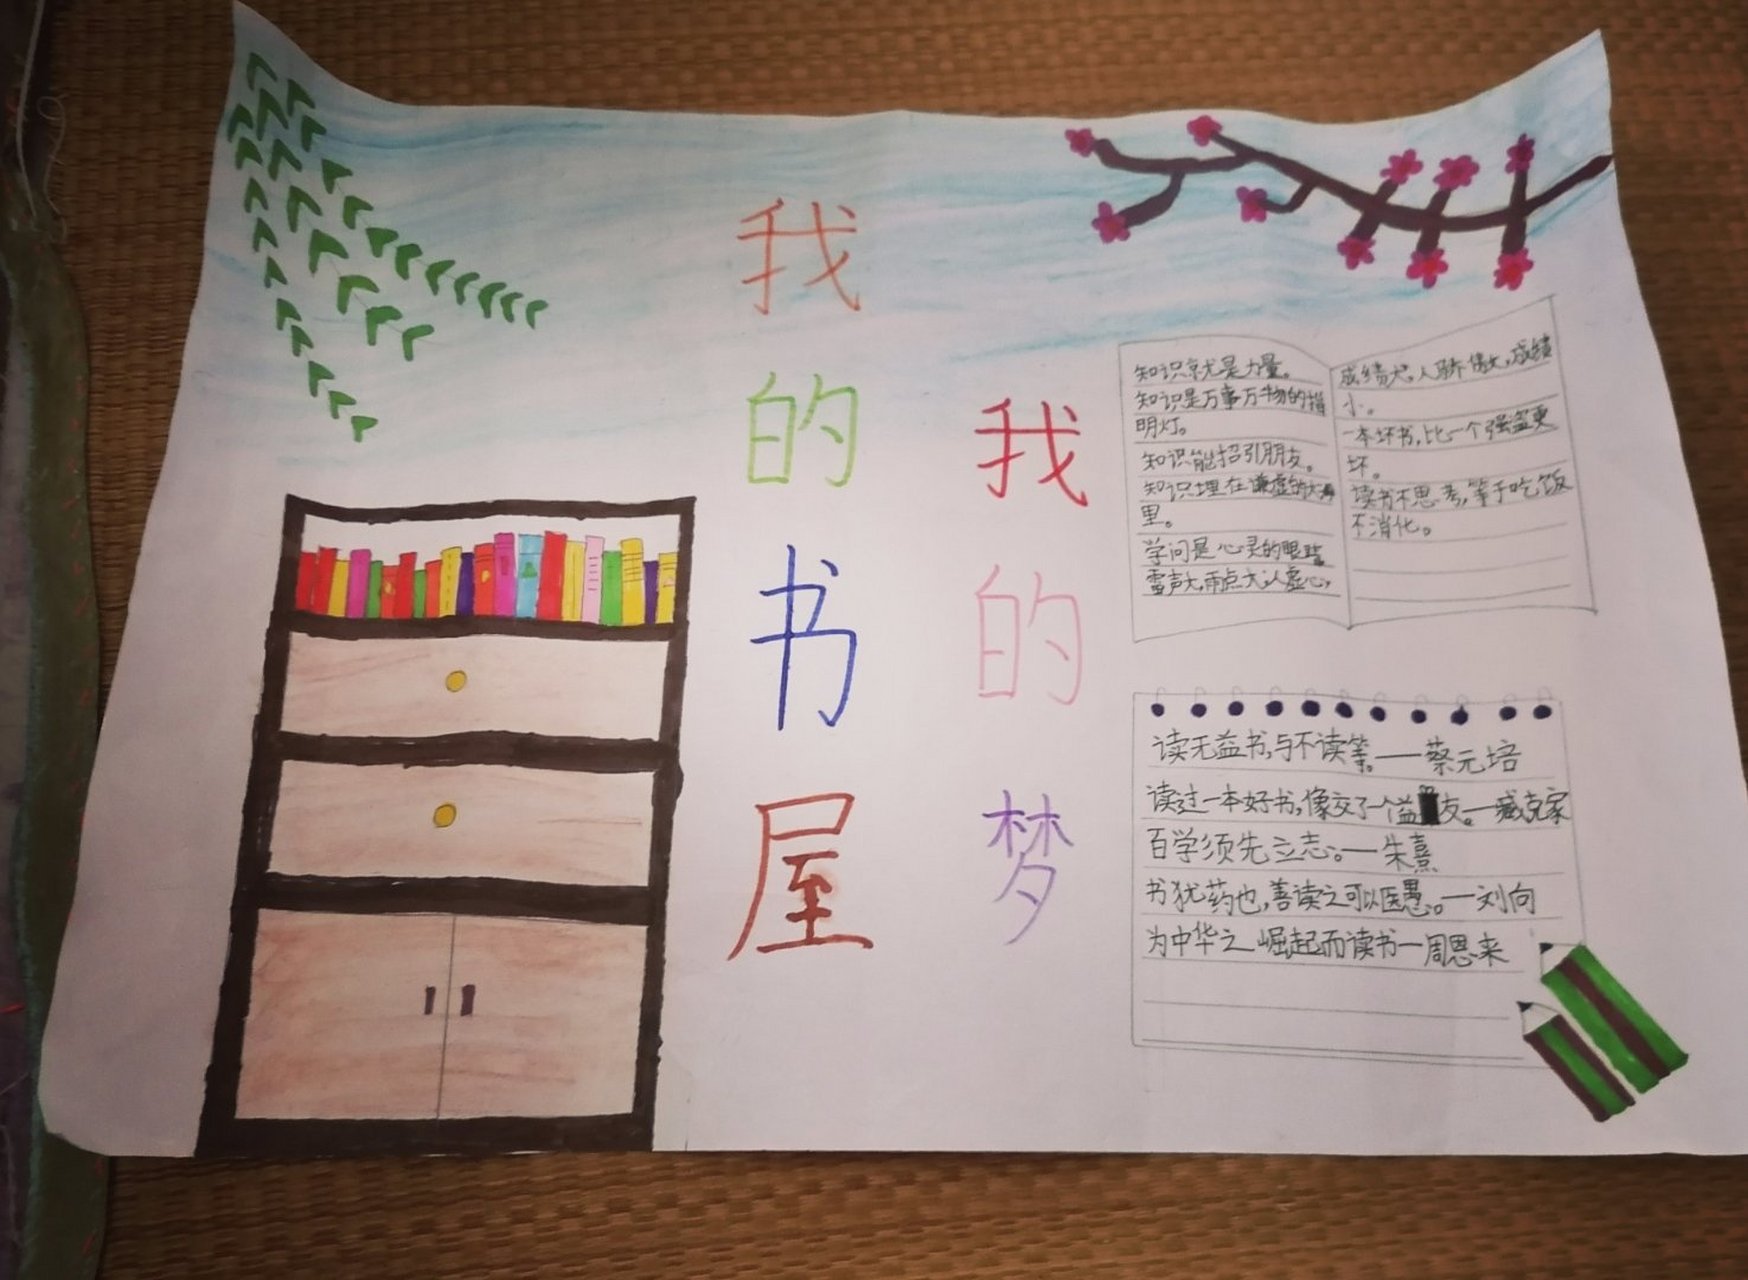 我的书屋
我的梦
知识就是力量。
知识是万事万物的指
明灯。
知识能招引朋友。
知识埋在谦虚的大海
里。
学问是心灵的眼睛
雷声大,雨点大人虚心,
成绩大。人骄傲大,成绩
小。
一本坏书,比一个强盗更
坏。
读书不思考,等于吃饭
不消化。
读无益书,与不读等。——蔡元培
读过一本好书,像交了个益友。—臧克家
百学须先立志。—朱熹
书犹药也,善读之可以医愚。—刘向
为中华之崛起而读书—周恩来